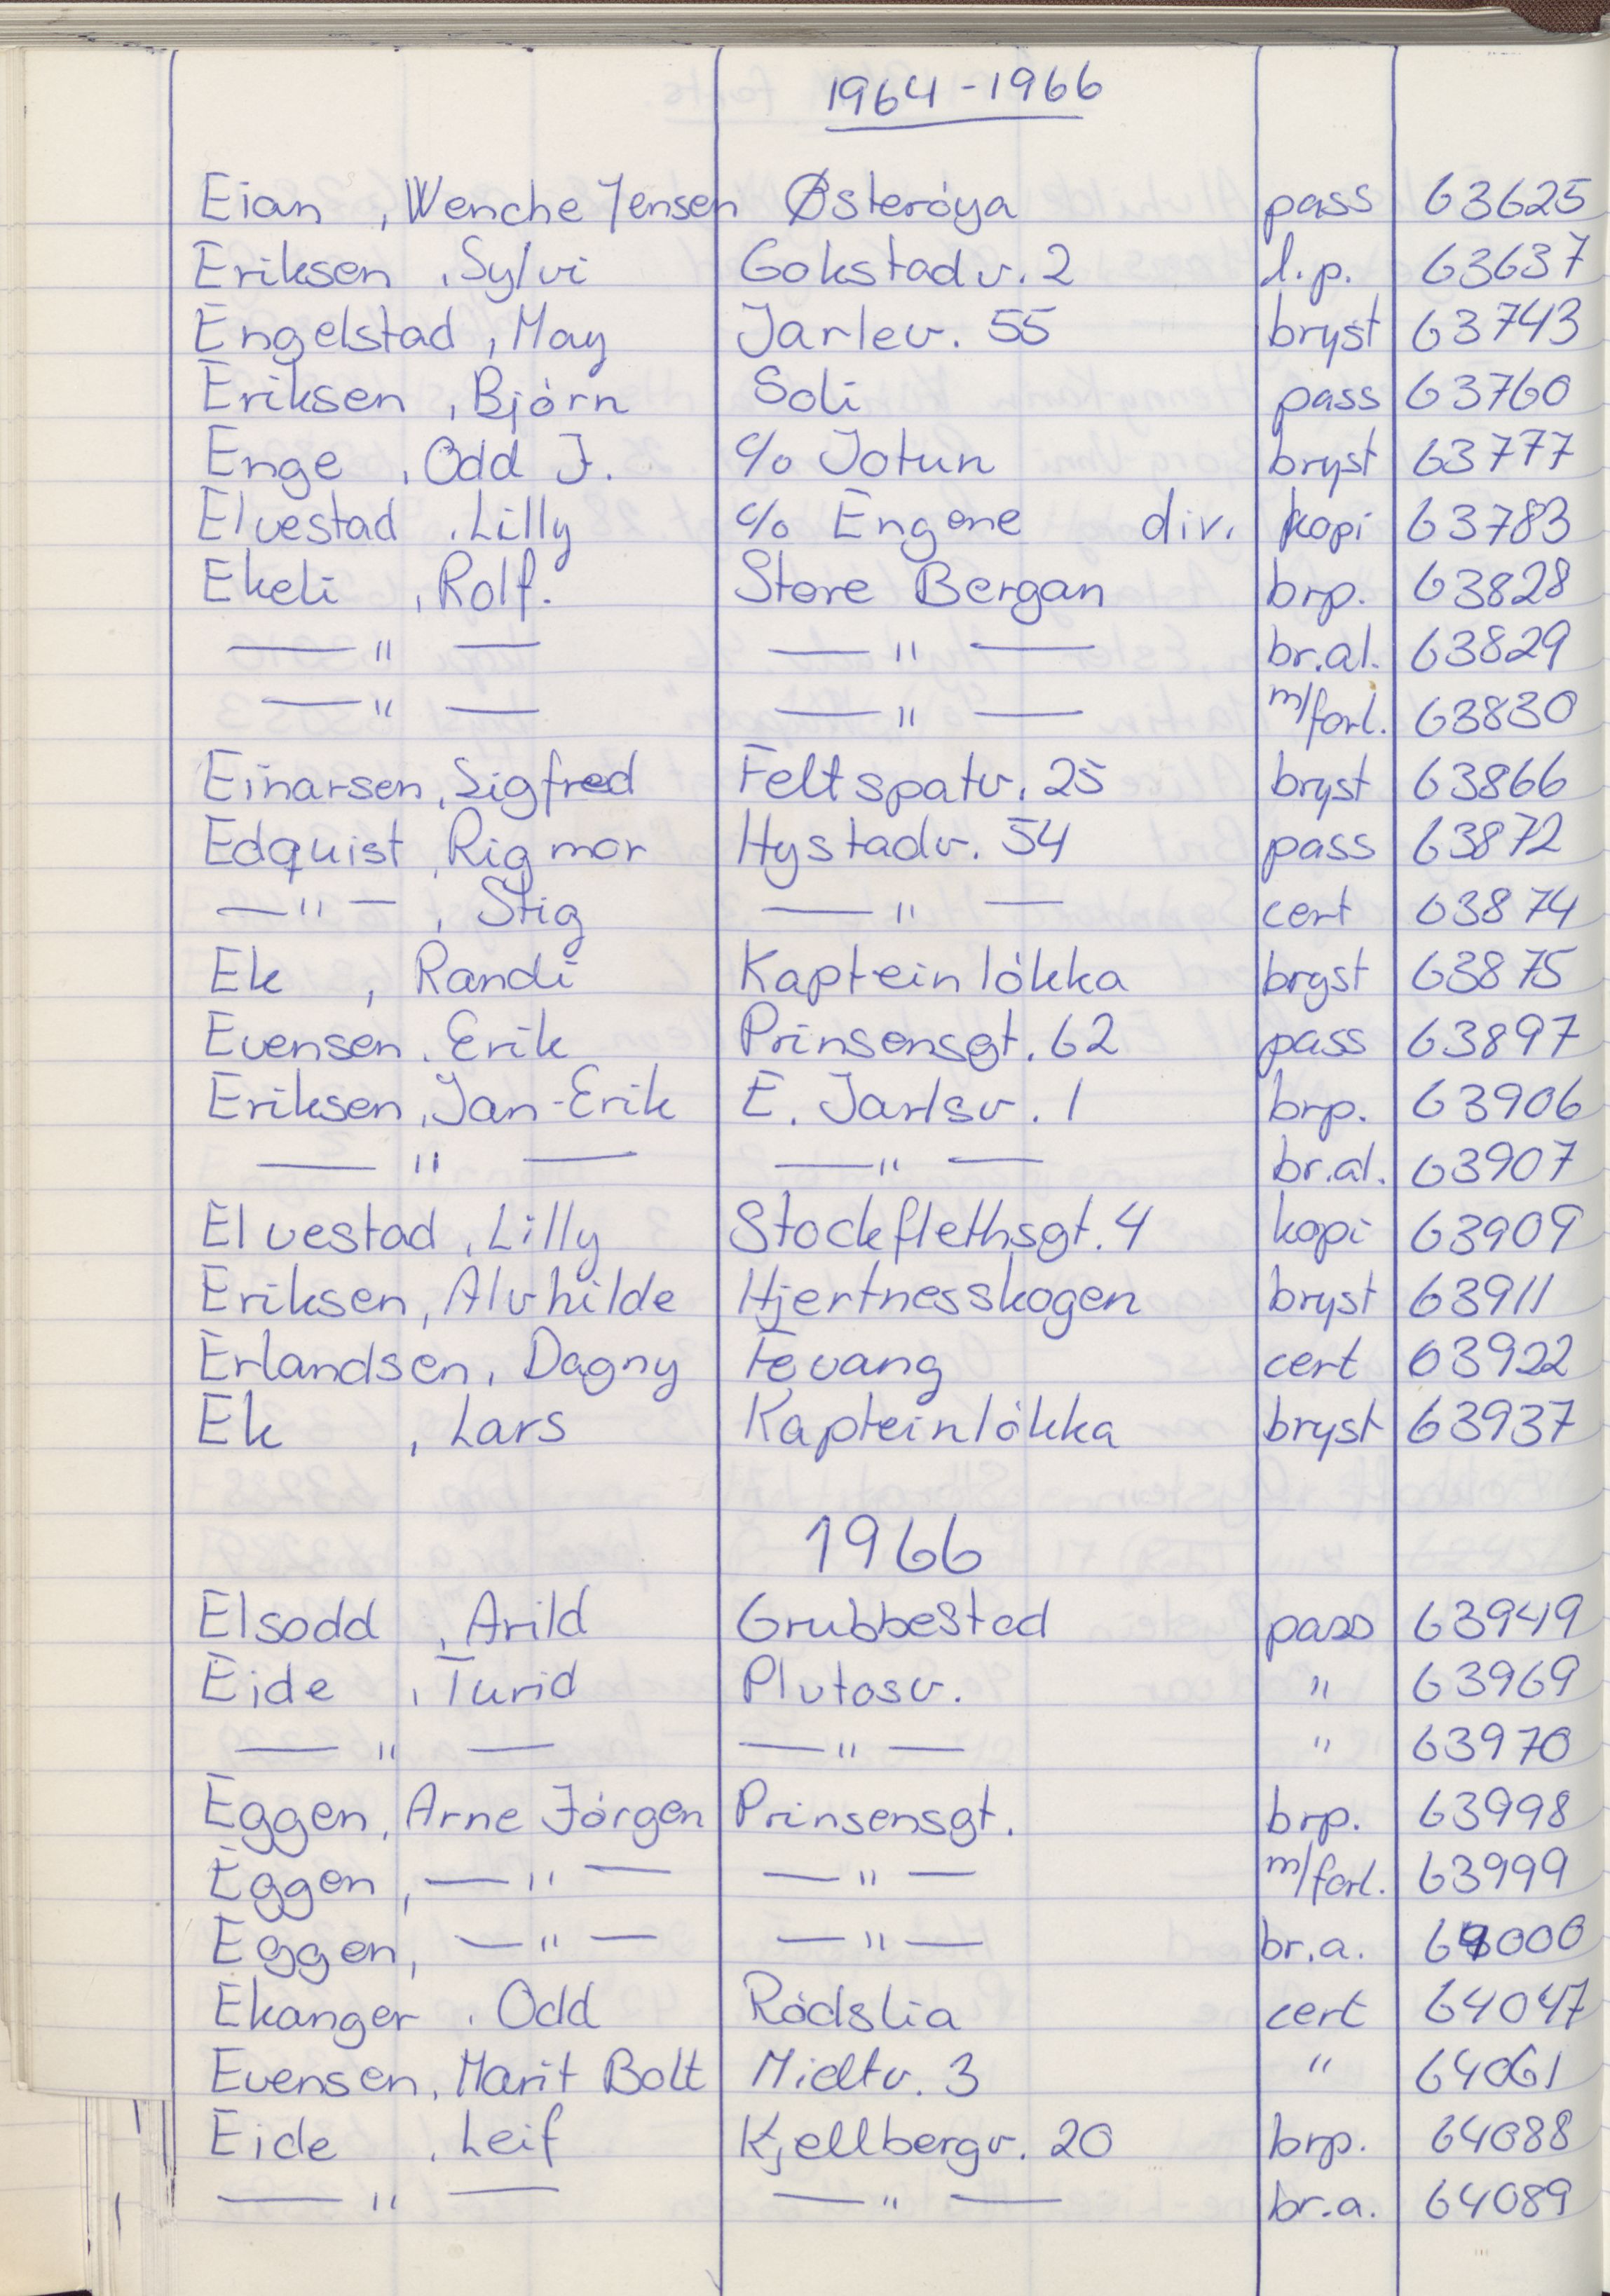 1964-1966
Eian, Wenche Jensen Østerøya pass 63625
Eriksen, Sylvi Gokstadv. 2 l.p. 63637
Engelstad, May Jarlev. 55 bryst 63743
Eriksen, Bjørn Soli pass 63760
Enge, Odd J. c/o Jotun bryst 63777
Elvestad, Lilly c/o Engene div. kopi 63783
Ekeli, Rolf. Store Bergan brp. 63828
— " — — " — br.al. 63829
— " — — " — m/forl. 63830
Einarsen, Sigfred Feltspatv. 25 bryst 63866
Edquist, Rigmor Hystadv. 54 pass 63872
— " —, Stig — " — cert 63874
Ek, Randi Kapteinløkka bryst 63875
Evensen, Erik Prinsensgt. 62 pass 63897
Eriksen, Jan-Erik E. Jarlsv. 1 brp. 63906
— " — — " — br.al. 63907
Elvestad, Lilly Stockflethsgt. 4 kopi 63909
Eriksen, Alvhilde Hjertnesskogen bryst 63911
Erlandsen, Dagny Fevang cert 63922
Ek, Lars Kapteinløkka bryst 63937
1966
Elsodd, Arild Grubbestad pass 63949
Eide, Turid Plutosv. " 63969
— " — — " — " 63970
Eggen, Arne Jørgen Prinsensgt. brp. 63998
Eggen, — " — — " — m/forl. 63999
Eggen, — " — — " — br.a. 64000
Ekanger, Odd Rødslia cert 64047
Evensen, Marit Bolt Midtv. 3 " 64061
Eide, Leif Kjellbergv. 20 brp. 64088
— " — — " — br.a. 64089